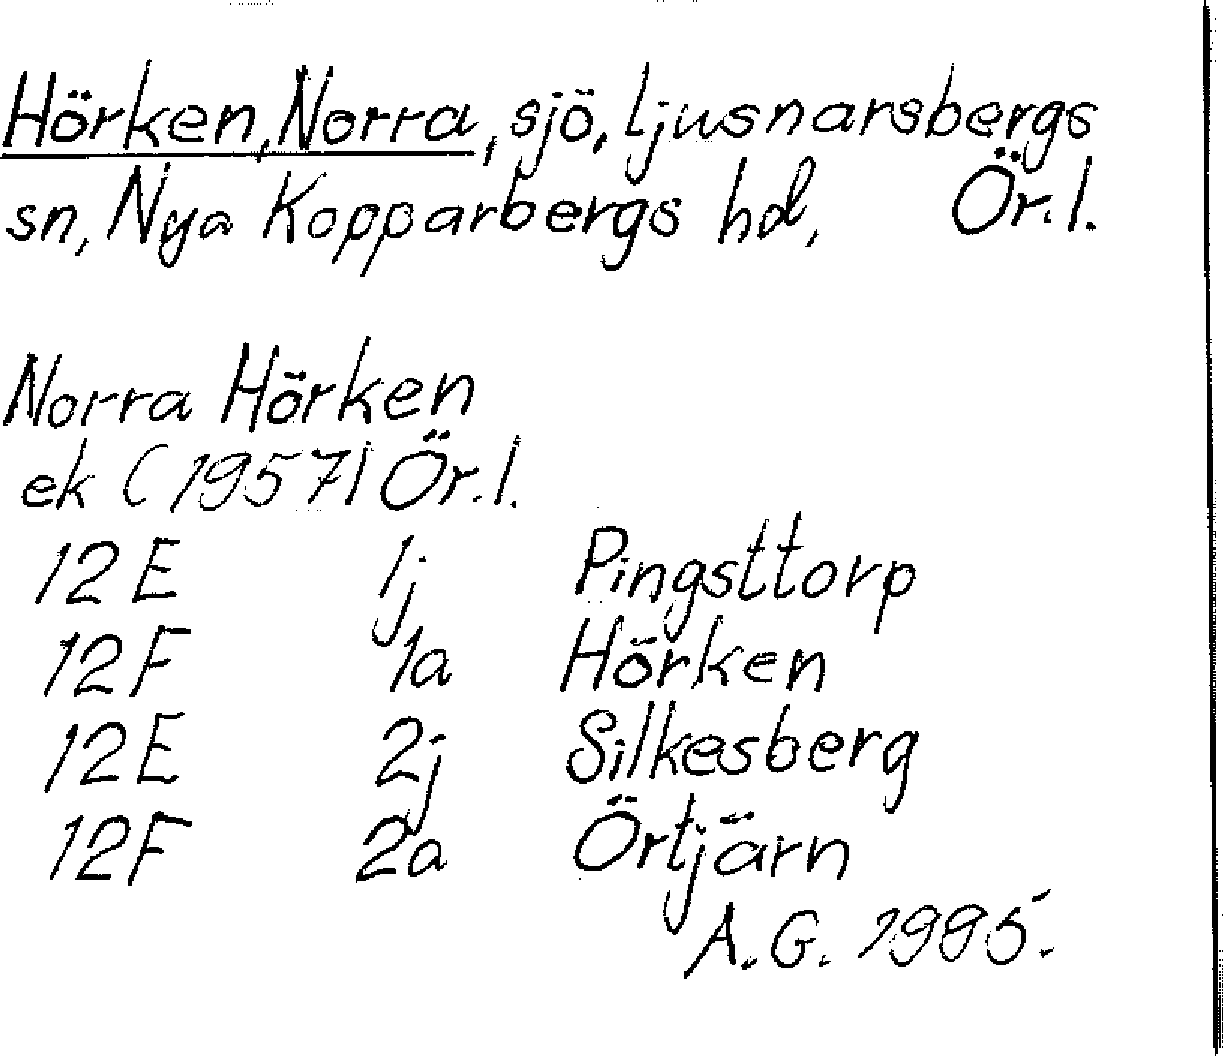 Hörken, Norra, sjö, Ljusnarsbergs
sn, Nya Kopparbergs hd, Ör. l.
Norra Hörken
ek (1957) Ör. l.
12E 1j Pingsttorp
12F 1a Hörken
12E 2j Silkesberg
12F 2a Örtjärn
A.G. 1995.